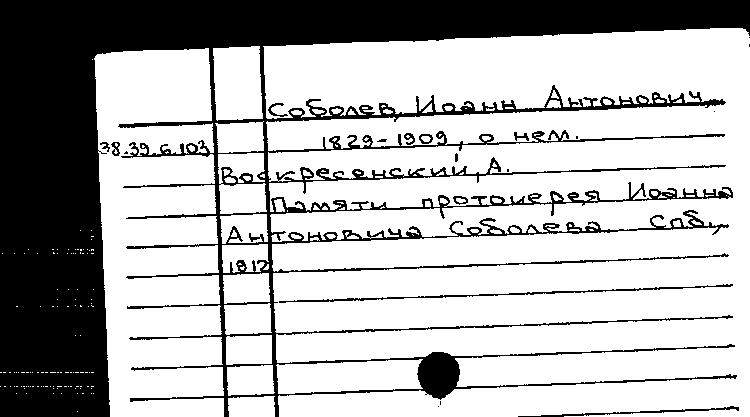 Соболев, Иоанн Антонович,
38.39.6.103 1829-1909, о нем.
Воскресенский, А.
Памяти протоиерея Иоанна
Антоновича Соболева. Спб.,
1912.